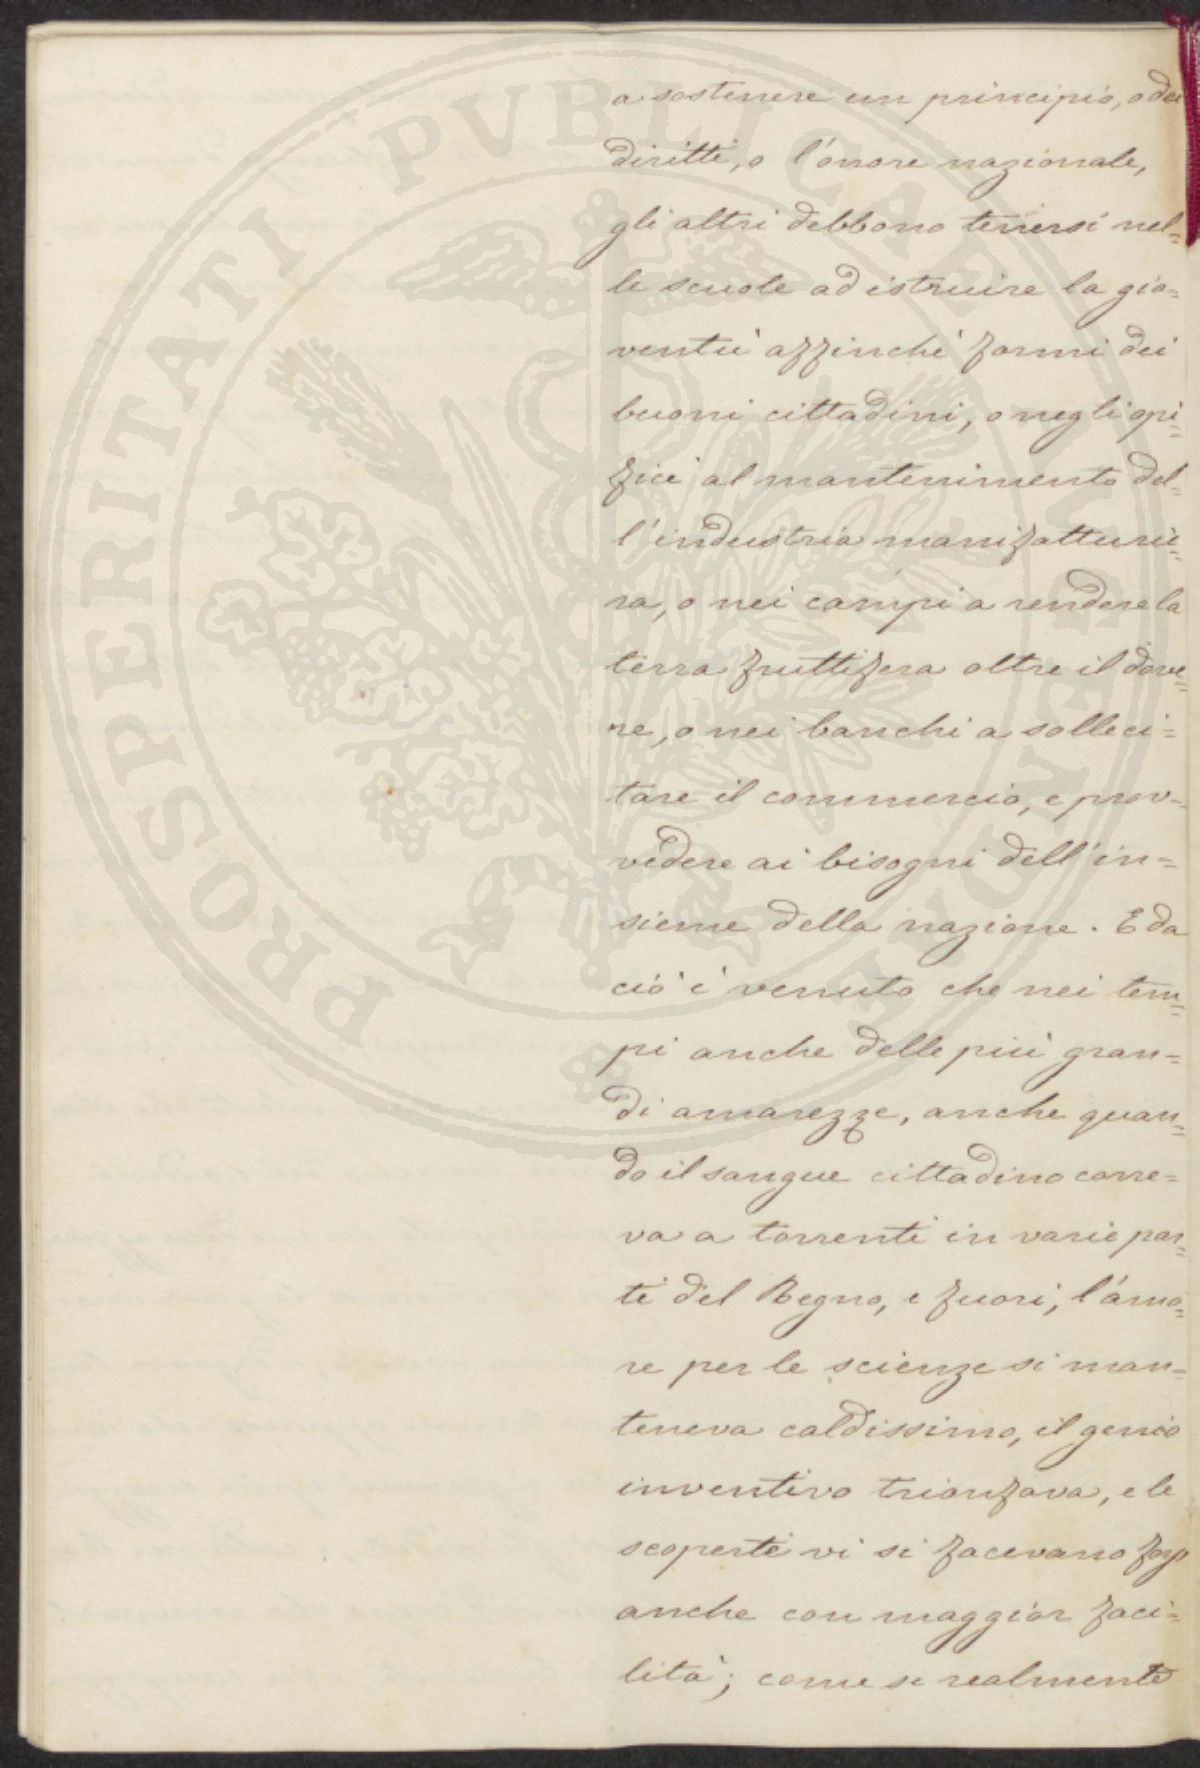 a sostenere un principio, o dei
diritti, o l'onore nazionale,
gli altri debbono tenersi nel=
le scuole ad istruire la gio=
ventù affinchè formi dei
buoni cittadini, o negli opi=
fici al mantenimento del=
l'industria manifatturie=
ra, o nei campi a rendere la
terra fruttifera oltre il dove=
re, o nei banchi a solleci=
tare il commercio, e prov=
vedere ai bisogni dell'in=
sieme della nazione. E da
ciò è venuto che nei tem=
pi anche delle più gran=
di amarezze, anche quan=
do il sangue cittadino corre=
va a torrenti in varie par=
ti del Regno, e fuori, l'amo=
re per le scienze si man=
teneva caldissimo, il genio
inventivo trionfava, e le
scoperte vi si facevano
anche con maggior faci=
lità; come se realmente
PROSPERITATI PVBLICAE AVGENDAE